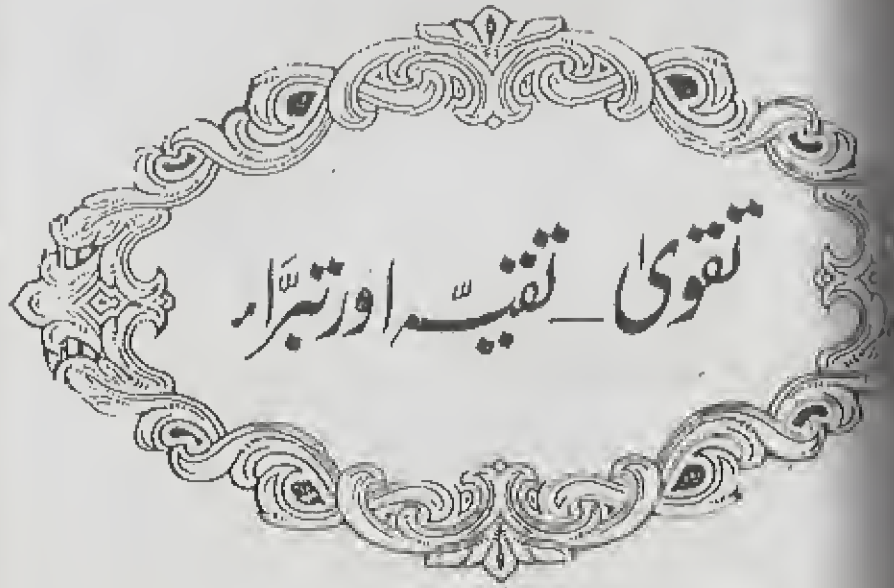 تقویٰ — تقیّہ اور تبرّاء